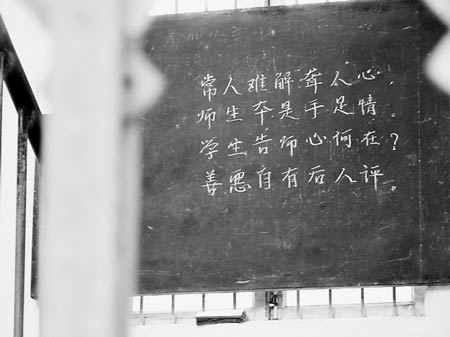 常人难解聋人心，
师生本是手足情。
学生告师心何在？
善恶自有后人评。